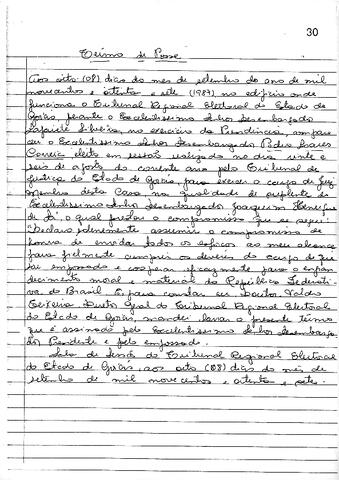 30
Termo de Posse
Aos oito (08) dias do mes de setembro do ano de mil
novecentos e oitenta e sete (1987) no edifício onde
funciona o Tribunal Regional Eleitoral do Estado de
Goiás, perante o Excelentíssimo Senhor Desembargador
Lafaiete Silveira, no exercício da Presidência, compare
ceu o Excelentíssimo Senhor Desembargador Pedro Soares
Correia eleito em sessão realizada no dia vinte e
seis de agosto do corrente ano pelo Tribunal de
Justiça do Estado de Goiás, para exercer o cargo de Juiz
membro desta Casa na qualidade de suplente do
Excelentíssimo Senhor Desembargador Joaquim Henrique
de Sá, o qual prestou o compromisso que se segue:
"Declaro solenemente assumir o compromisso de
honra de envidar todos os esforços ao meu alcance
para fielmente cumprir os deveres do cargo de que
fui empossado e cooperar eficazmente para o engran
decimento moral e material da República Federati
va do Brasil. E para constar eu Doutor Valdo
Teixeira Diretor Geral do Tribunal Regional Eleitoral
do Estado de Goiás, mandei lavrar o presente termo
que é assinado pelo Excelentíssimo Senhor Desembarga
dor Presidente e pelo empossado.
Sala de Sessão do Tribunal Regional Eleitoral
do Estado de Goiás, aos oito (08) dias do mês de
setembro de mil novecentos e oitenta e sete.